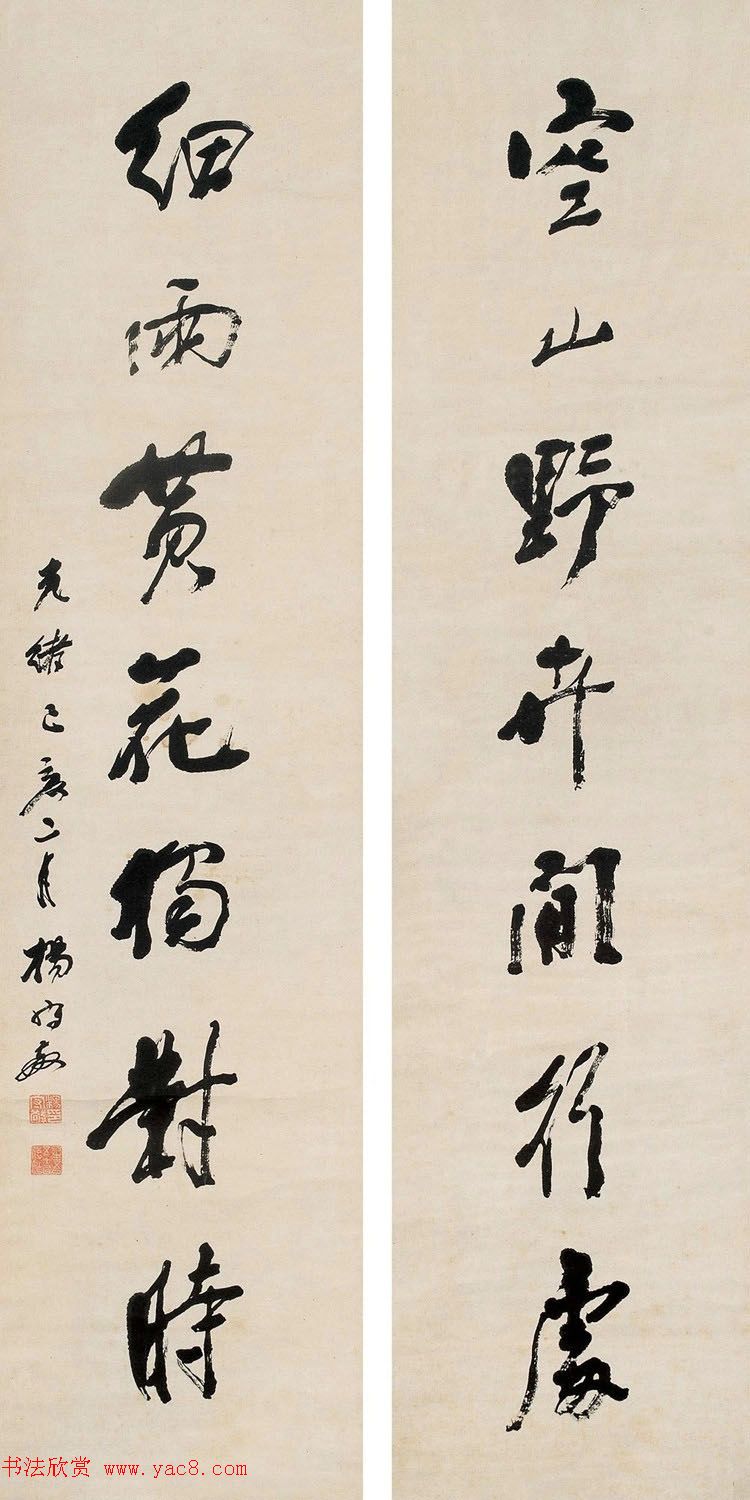 空山野卉閒行處
細雨黄花獨對時
光緒己亥二月楊守敬
书法欣赏 www.yac8.com